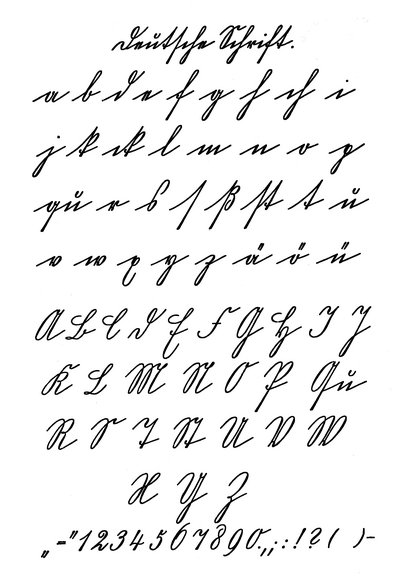 Deutsche Schrift.
a b d e f g h ch i
j k ck l m n o p
qu r s ſ ß ſt t u
v w x y z ä ö ü
A B C D E F G H I J
K L M N O P Qu
R S T St U V W
X Y Z
„-"1234567890.,;:!?( )-